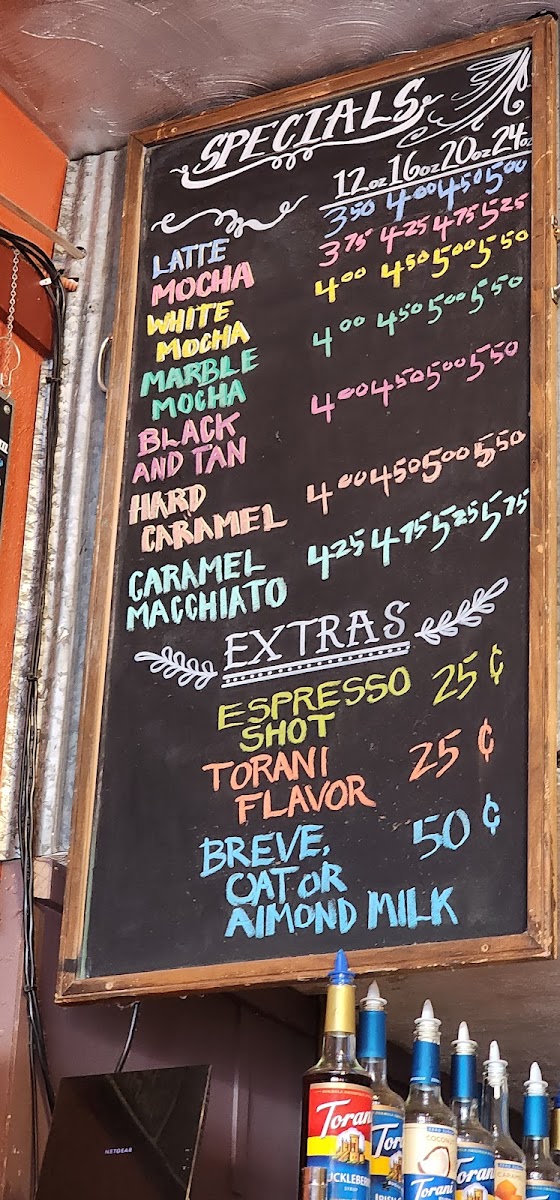 SPECIALS
12oz 16oz 20oz 24oz
LATTE 3.50 4.00 4.50 5.00
MOCHA 3.75 4.25 4.75 5.25
WHITE MOCHA 4.00 4.50 5.00 5.50
MARBLE MOCHA 4.00 4.50 5.00 5.50
BLACK AND TAN 4.00 4.50 5.00 5.50
HARD CARAMEL 4.00 4.50 5.00 5.50
CARAMEL MACCHIATO 4.25 4.75 5.25 5.75
EXTRAS
ESPRESSO SHOT 25¢
TORANI FLAVOR 25¢
BREVE, 50¢
OAT OR
ALMOND MILK
NETGEAR
Torani
COCONUT
Torani
CARAMEL